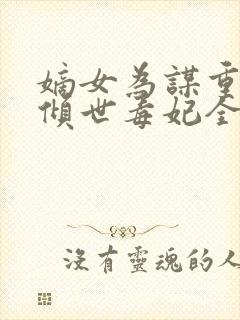 嫡女為謀重
傾世毒妃全
沒有靈魂的人